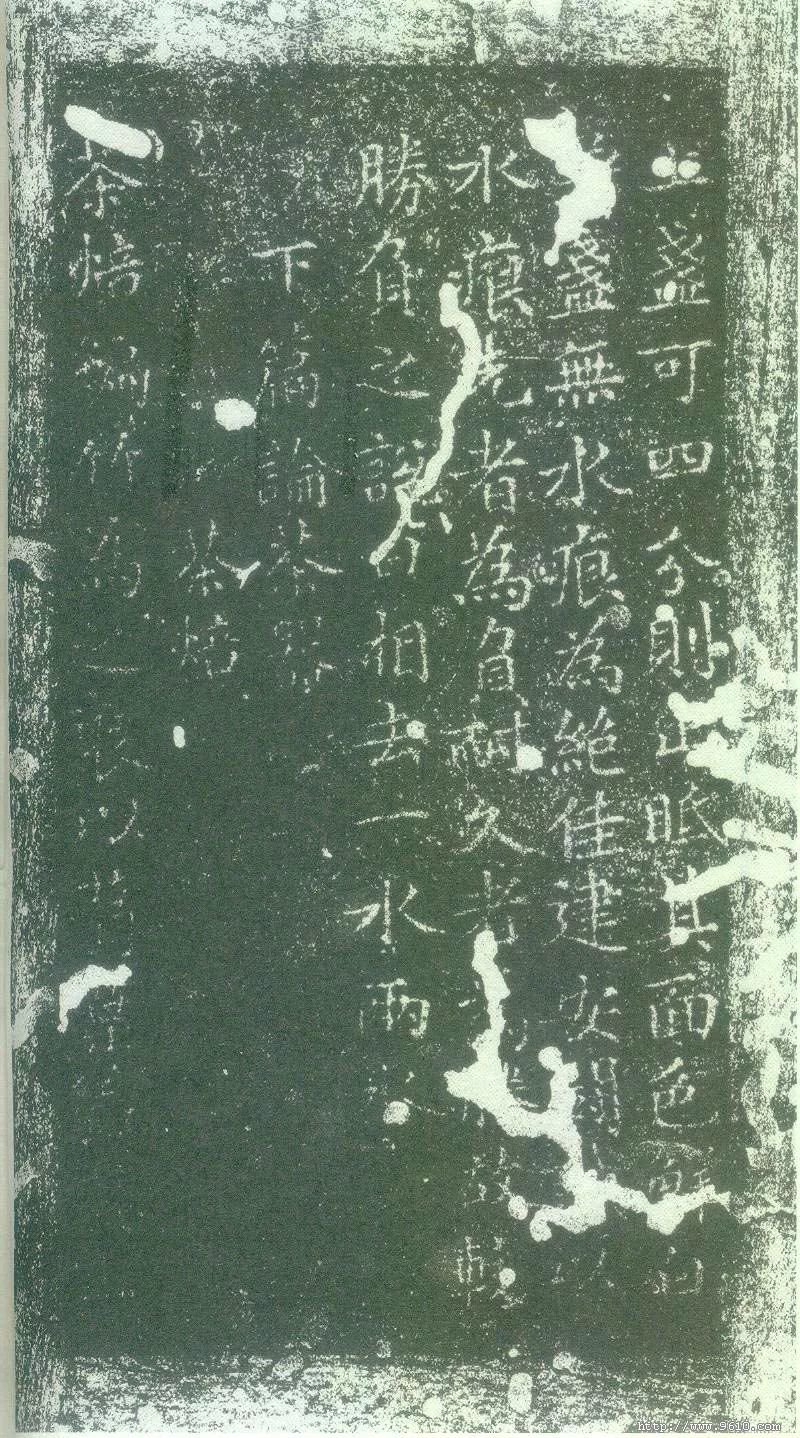 上盞可四分則止眂其面色鮮白
盞無水痕為絶佳建安鬭以
水痕先者為負耐久者故較
勝負之說曰相去一水兩
下篇論茶器
茶焙
茶焙編竹為之裹以
http://www.9610.com